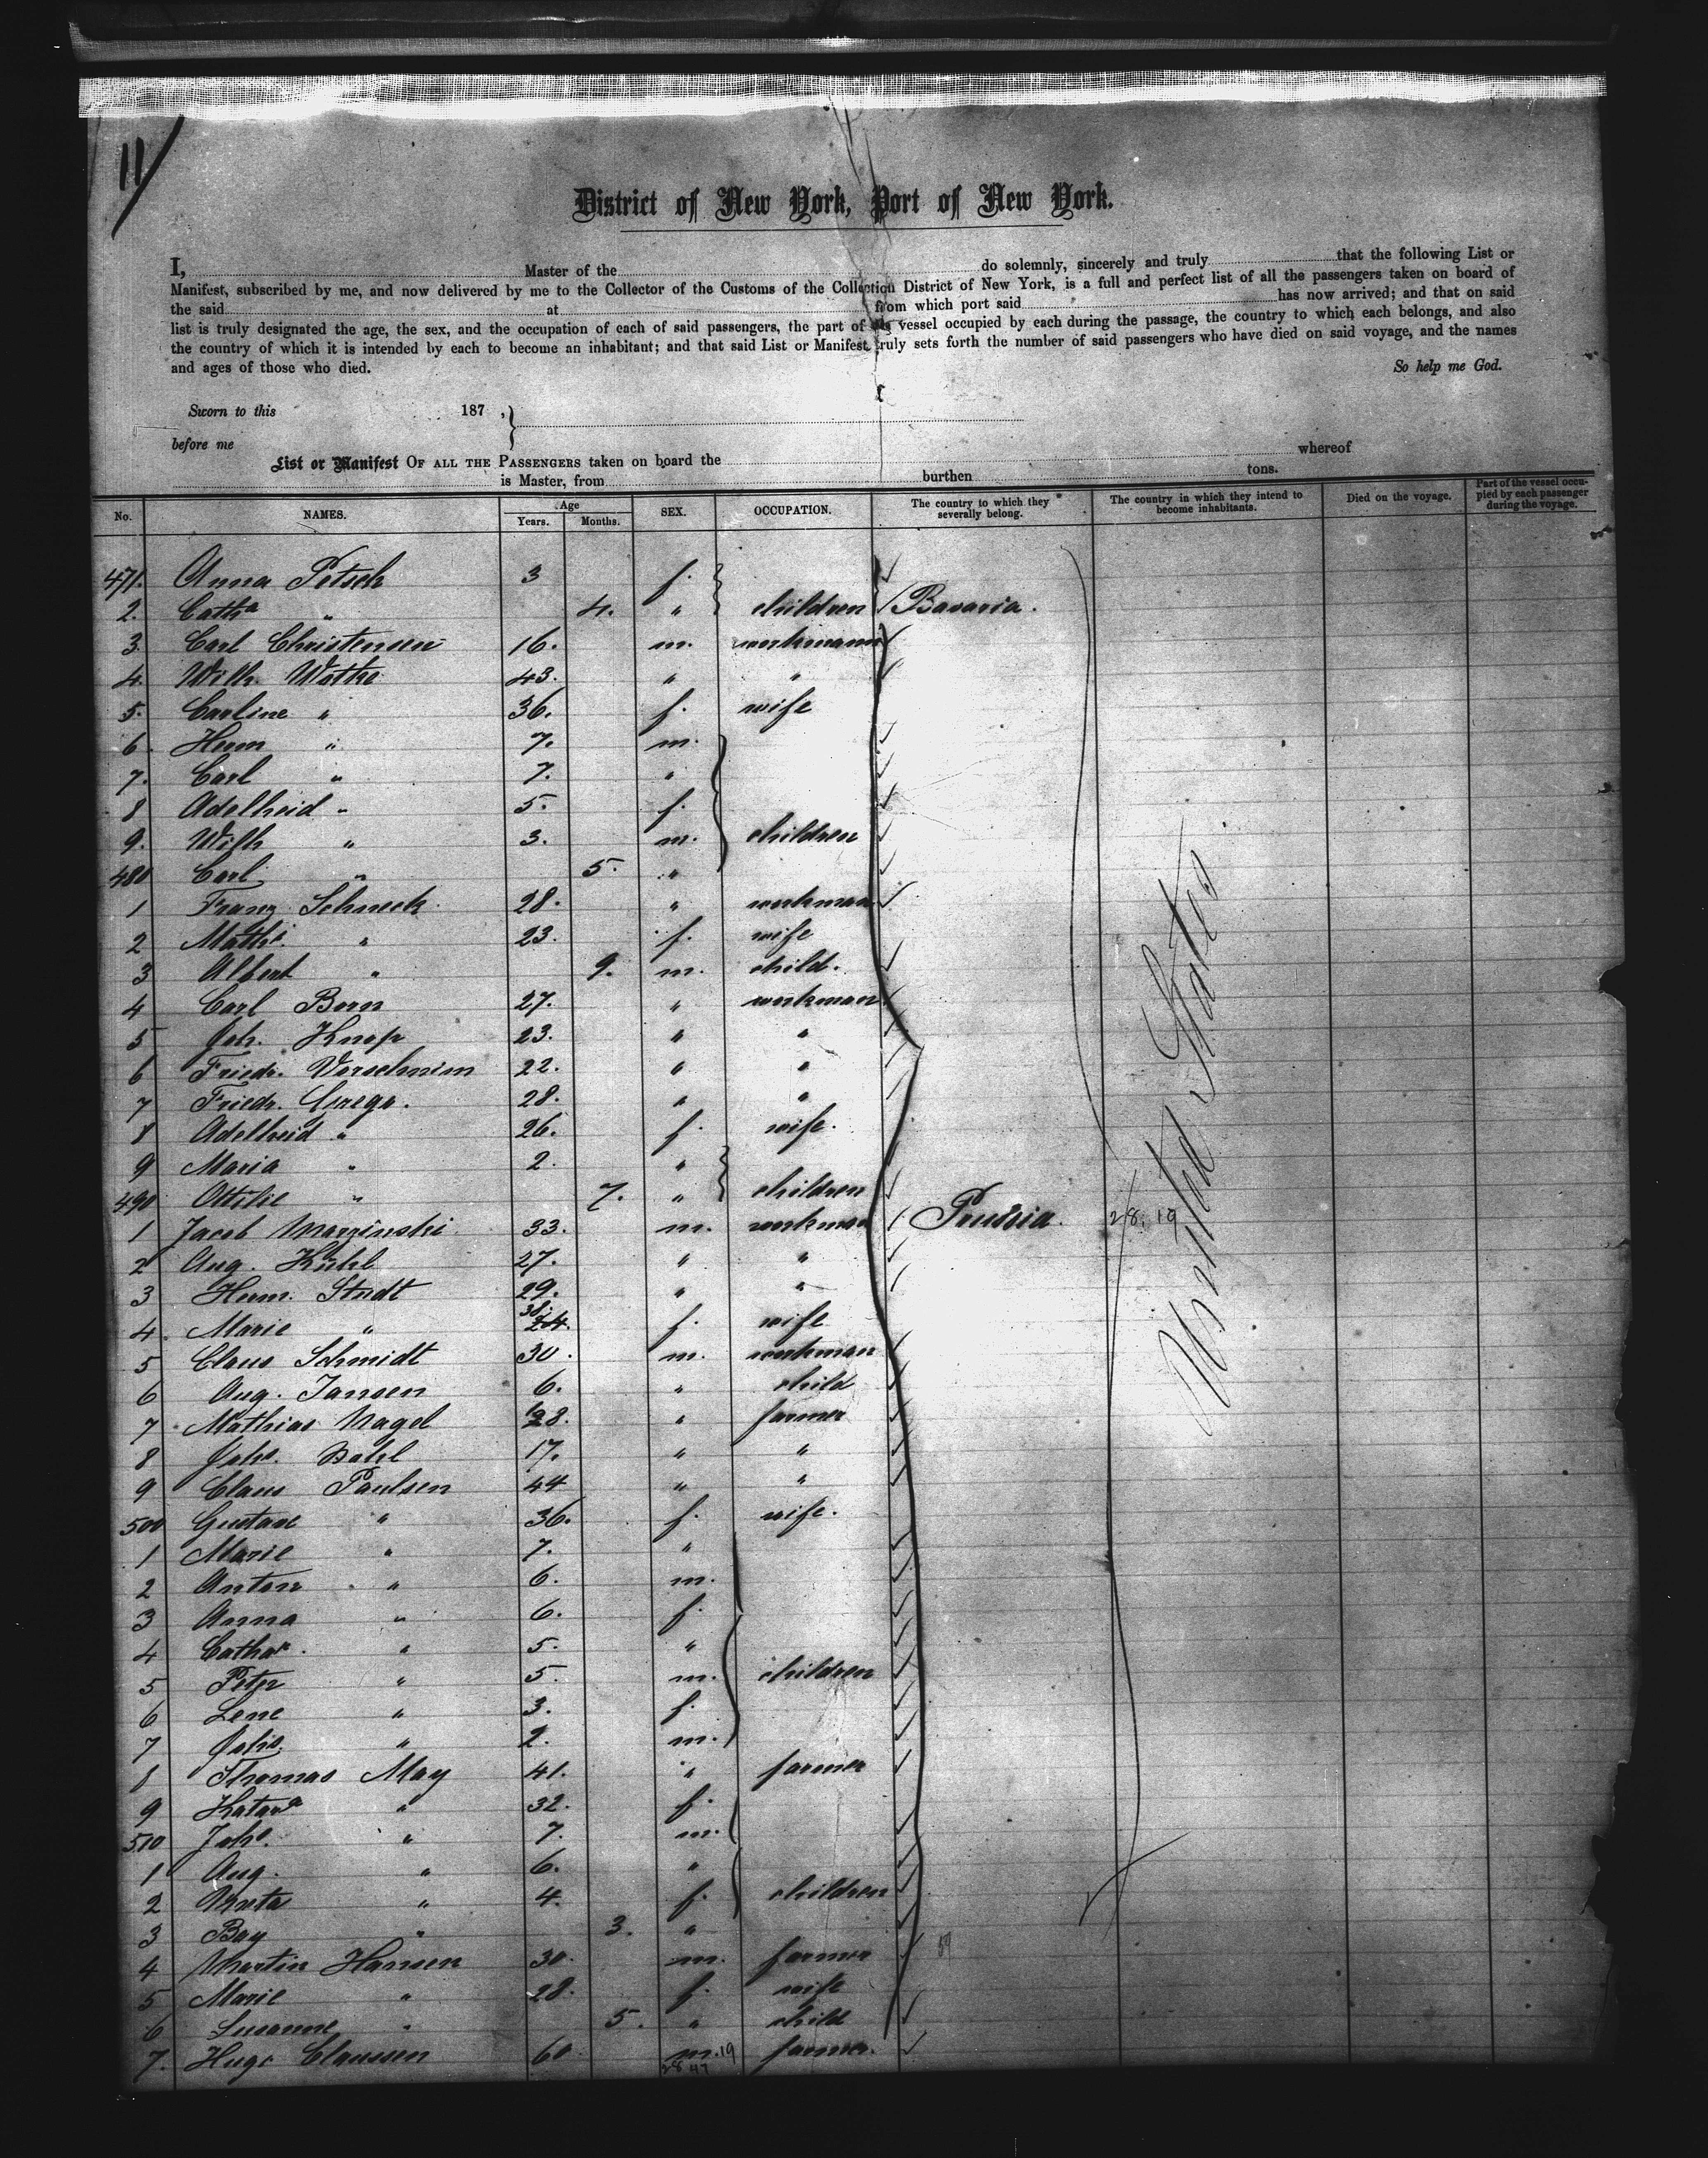 11/
District of New York, Port of New York.
I, Master of the do solemnly, sincerely and truly that the following List or
Manifest, subscribed by me, and now delivered by me to the Collector of the Customs of the Collection District of New York, is a full and perfect list of all the passengers taken on board of
the said at from which port said has now arrived; and that on said
list is truly designated the age, the sex, and the occupation of each of said passengers, the part of the vessel occupied by each during the passage, the country to which each belongs, and also
the country of which it is intended by each to become an inhabitant; and that said List or Manifest truly sets forth the number of said passengers who have died on said voyage, and the names
and ages of those who died. So help me God.
Sworn to this 187 , }
before me
List or Manifest OF ALL THE PASSENGERS taken on board the whereof
is Master, from burthen tons.
No. NAMES. Age Years. Months. SEX. OCCUPATION. The country to which they severally belong. The country in which they intend to become inhabitants. Died on the voyage. Part of the vessel occupied by each passenger during the voyage.
471. Anna Petsch 3 f.
2. Cath^a " 4. " children Bavaria.
3. Carl Christensen 16. m. workmann
4. Wilh. Wothe 43. " "
5. Carline " 36. f. wife
6. Herm " 7. m.
7. Carl " 7. "
8 Adelheid " 5. f.
9. Wilh " 3. m. children
480 Carl " 5. "
1 Franz Schneck 28. " workman
2 Math^i " 23. f. wife
3 Albert " 9. m. child.
4 Carl Born 27. " workman
5 Joh. Knop 23. " "
6 Friedr. 22. " "
7 Friedr. 28. " "
8 Adelheid " 26. f. wife.
9 Maria " 2. "
490 Ottilie " 7. " children
1 Jacob Marzinski 33. m. workman Prussia. 28. 19
2 Aug. Kuhl 27. " "
3 Herm. Stedt 29. " "
4. Marie " 38. 24. f. wife
5 Claus Schmidt 30. m. workman
6 Aug. Jansen 6. " child
7 Mathias Nagel 28. " farmer
8 Johs. Dahl 17. " "
9 Claus Paulsen 44 " "
500 Gustave " 36. f. wife.
1 Marie " 7. "
2 Anton " 6. m.
3 Anna " 6. f.
4 Catha^a. " 5. "
5 Peter " 5. m. children
6 Lene " 3. f.
7 Johs. " 2. m.
8 Thomas May 41. " farmer
9 Katar^a " 32. f.
510 Joh^s. " 7. m.
1 Aug. " 6. "
2 Meta " 4. f. children
3 Boy " 3. "
4 Martin Hansen 30. m. farmer
5 Marie " 28. f. wife
6 Susanne " 5. " child
7. Hugo Claussen 60 m. 19 farmer.
28 47
United States